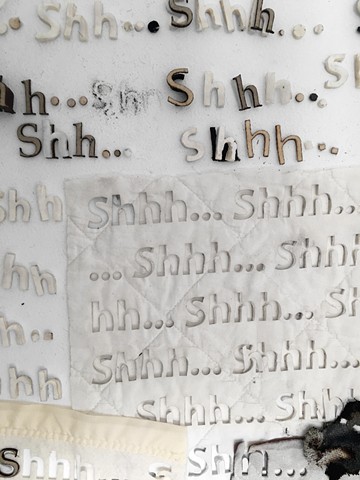 Shhh... Shhh...
hh... Shh Shhh...
Shh... Shhh...
Shh Shhh... Shhh...
... Shhh... Shhh
hh hh... Shhh... Sh
h.. Shhh... Shhh...
hh Shhh... Shh
Shhh Shh...